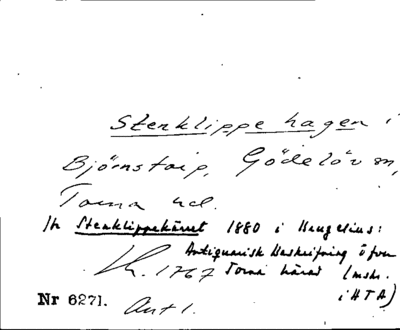 Stenklippe hagen i
Björnstorp, Gödelöv sn,
Torna hd.
Stenklippekärret 1880 i Kaugelius:
Antiquarisk Beskrifning öfver
Lh. 1767 Torna härad (mskr.
i ATA)
Nr 6271. Ant 1.